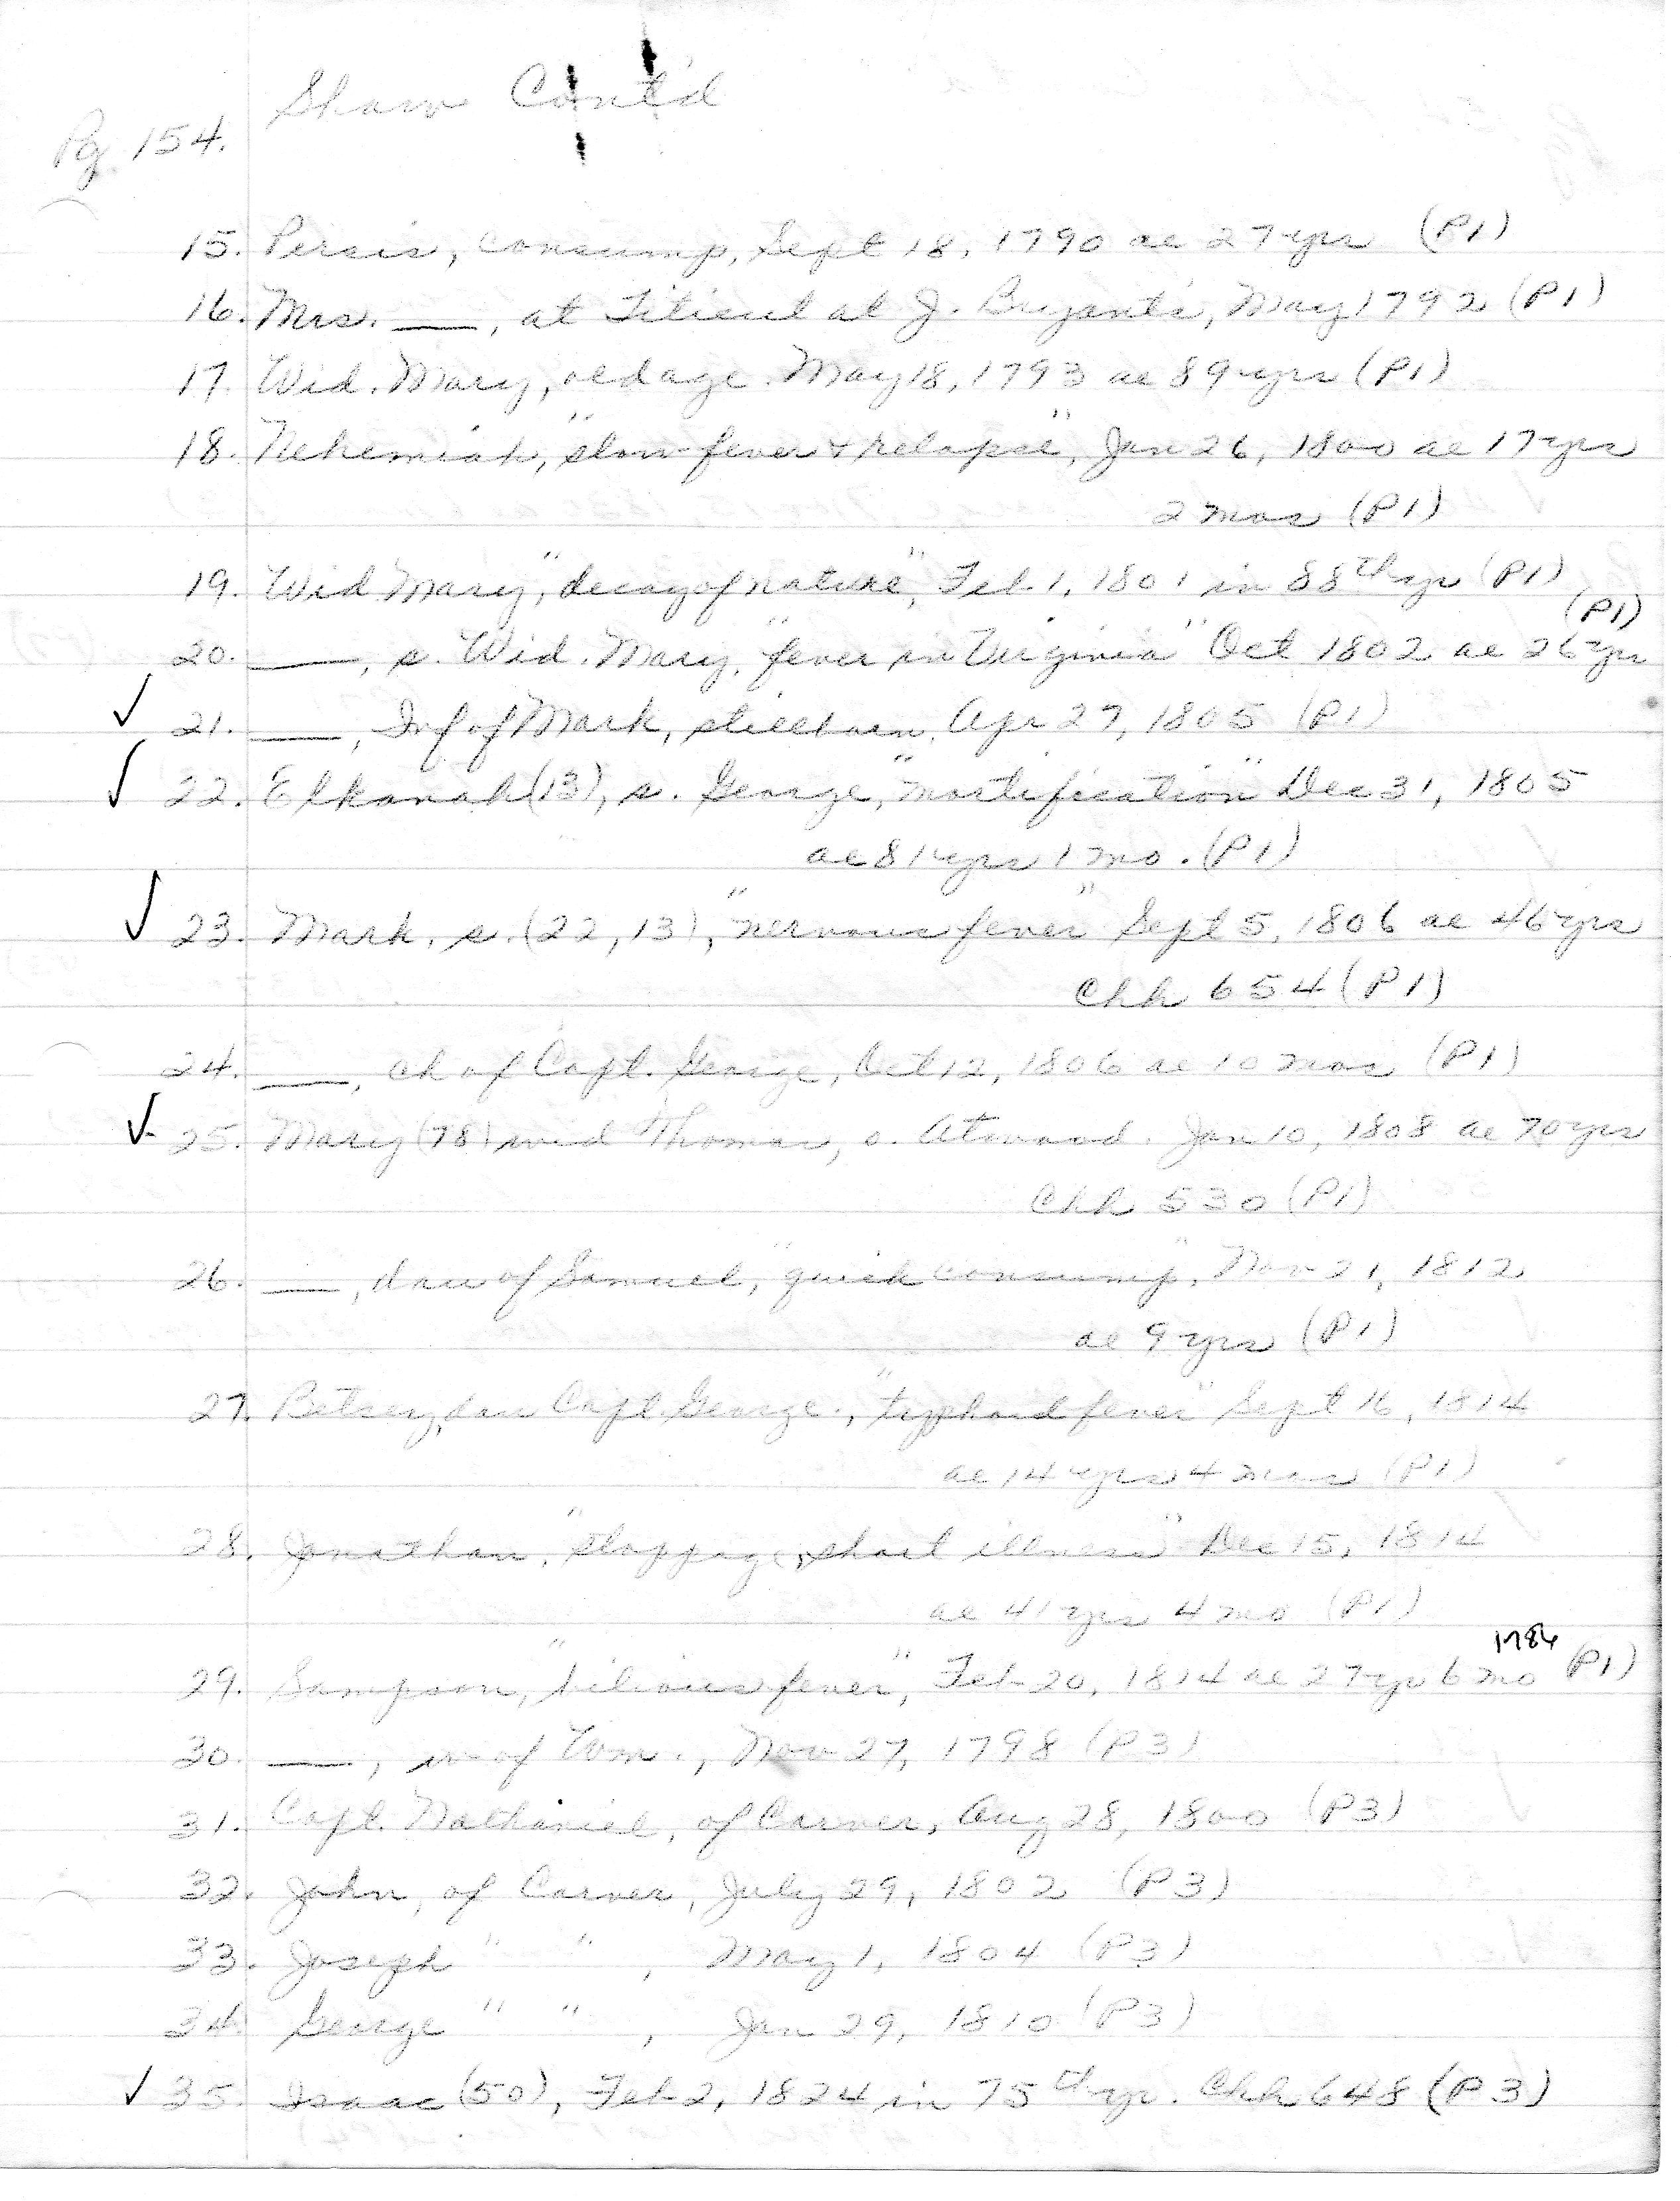 Shaw Cont'd
Pg 154.
15. Persis, consump, Sept 18, 1790 ae 27 yrs (P1)
16. Mrs. ——, at Titicut at J. Bryant's, May 1792 (P1)
17. Wid. Mary, old age. May 18, 1793 ae 89 yrs (P1)
18. Nehemiah, "slow fever & relapse", Jan 26, 1800 ae 17 yrs
2 mos (P1)
19. Wid Mary, "decay of nature", Feb. 1, 1801 in 88th yr (P1)
(P1)
20. ——, s. Wid. Mary, "fever in Virginia" Oct 1802 ae 26 yrs
✓ 21. ——, Inf of Mark, stillborn, Apr 27, 1805 (P1)
✓ 22. Elkanah (13), s. George, "mortification" Dec 31, 1805
ae 81 yrs 1 mo. (P1)
✓ 23. Mark, s. (22, 13), "nervous fever" Sept 5, 1806 ae 46 yrs
Chh 654 (P1)
24. ——, ch of Capt. George, Oct 12, 1806 ae 10 mos (P1)
✓ 25. Mary (78) wid Thomas, o. Atwood. Jan 10, 1808 ae 70 yrs
Chh 530 (P1)
26. ——, dau of Samuel, "quick consump", Nov 21, 1812
ae 9 yrs (P1)
27. Betsey, dau Capt. George, "typhoid fever" Sept 16, 1814
ae 14 yrs 4 mos (P1)
28. Jonathan, "stoppage, short illness" Dec 15, 1814
ae 41 yrs 4 mo (P1)
1786
29. Sampson, "bilious fever", Feb 20, 1814 ae 27 yrs 6 mo (P1)
30. ——, w of Wm., Nov 27, 1798 (P3)
31. Capt. Nathaniel, of Carver, Aug 28, 1800 (P3)
32. John, of Carver, July 29, 1802 (P3)
33. Joseph " ", May 1, 1804 (P3)
34. George " ", Jan 29, 1810 (P3)
✓ 35. Isaac (50), Feb 2, 1824 in 75th yr. Chh 648 (P3)